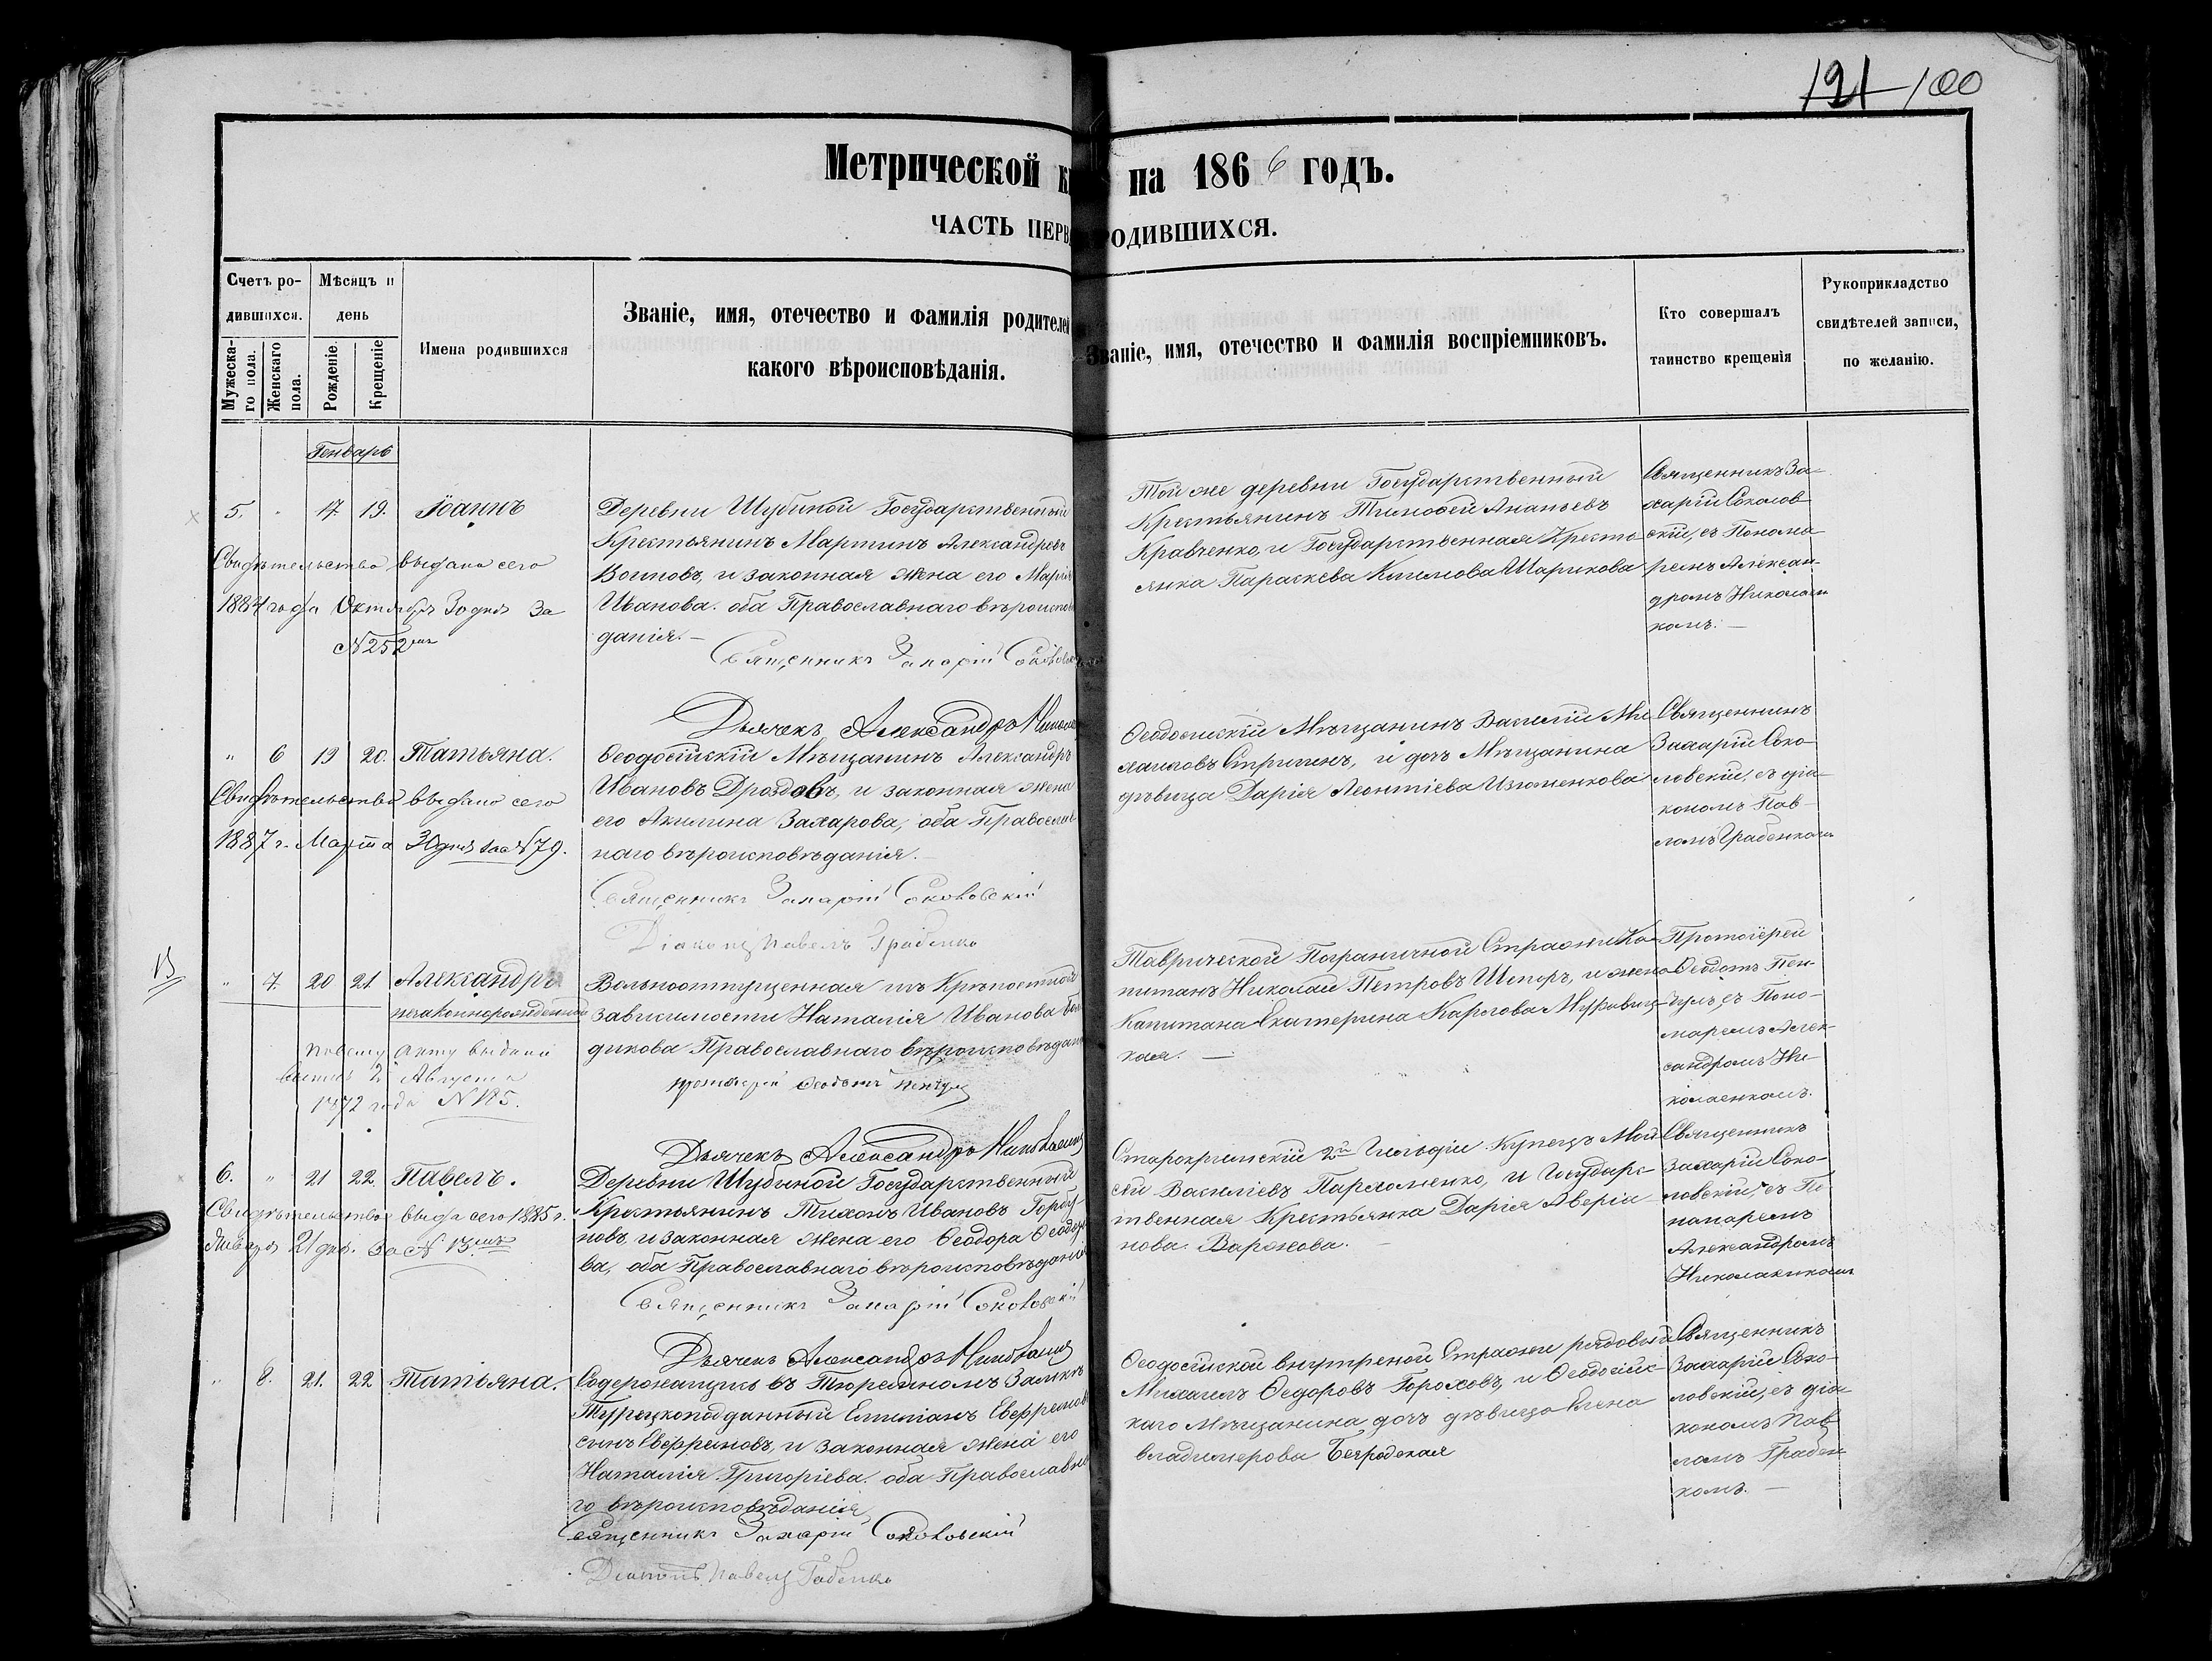 121 100
Метрической к на 1866 годъ.
ЧАСТЬ ПЕРВ ОДИВШИХСЯ.
Счетъ ро-
дившихся.
Мужеска-
го пола.
Женскаго
пола.
Мѣсяцъ и
день
Рожденіе.
Крещеніе
Имена родившихся
Званіе, имя, отечество и фамилія родителей
какого вѣроисповѣданія.
Званіе, имя, отечество и фамилія воспріемниковъ.
Кто совершалъ
таинство крещенія
Рукоприкладство
свидѣтелей записи,
по желанію.
Генварь
5. 17. 19. Іоаннъ
Свидѣтельство выдано сего
1884 года Октября 30 дня за
№ 252
Деревни Шубиной Государственный
Крестьянинъ Мартинъ Александровъ
Воиновъ, и законная жена его Марія
Иванова. оба Православнаго вѣроиспов
данія. —
Священникъ Захарій Соколовскій
Дьячекъ Александръ
Той же деревни Государственный
Крестьянинъ Тимофей Ананьевъ
Кравченко, и Государственная Кресть
янка Параскева Климова Шарикова
Священникъ За-
харій Соколов
скій, съ Понома
ремъ Алексан-
дромъ Николаен
комъ. —
" 6 19 20. Татьяна.
Свидѣтельство выдано сего
1887 г. Марта 30 дня за № 79.
Ѳеодосійскій Мѣщанинъ Александръ
Ивановъ Дроздовъ, и законная жена
его Акилина Захарова, оба Православ
наго вѣроисповѣданія. —
Священникъ Захарій Соколовскій
Діаконъ Павелъ Грабенко
Ѳеодосійскій Мѣщанинъ Василій Ми
хаиловъ и дочь Мѣщанина
дѣвица Дарія Леонтіева Изюменкова
Священникъ
Захарій Соко-
ловскій, съ діа-
кономъ Пав-
ломъ Грабенкомъ
" 7. 20 21 Александра
незаконнорожденная
По сему акту выдана
2 Августа
1872 года № 185.
Вольноотпущенная изъ Крѣпостной
зависимости Наталія Иванова
дикова Православнаго вѣроисповѣдан
протоіерей Ѳеодотъ Пенчулъ
Дьячекъ Александръ Николаенко
Таврической Пограничной Стражи Ка-
питанъ Николай Петровъ и жена
Капитана Екатерина Карлова
кая. —
Протоіерей
Ѳеодотъ Пен-
чулъ, съ Поно-
маремъ Алек-
сандромъ Ни-
колаенкомъ.
6. " 21 22. Павелъ.
Свидѣтельство выдано сего 1885 г.
Января 21 дня. за № 13.
Деревни Шубиной Государственный
Крестьянинъ Тихонъ Ивановъ
новъ, и законная жена его Ѳеодора
ва, оба Православнаго вѣроисповѣданія
Священникъ Захарій Соколовскій
Дьячекъ Александръ Николаенко
Старокрымскій 2й Гильдіи Купецъ Мои
сей Василіевъ Пархоменко, и Государс-
твенная Крестьянка Дарія Аверіа
нова. —
Священникъ
Захарій Соко-
ловскій, съ По-
номаремъ
Александромъ
Николаенкомъ
" 8. 21. 22 Татіяна.
Содержащись въ Тюремномъ Замкѣ
Турецкоподданный Евфремов
сынъ Евфремовъ, и законная жена его
Наталія Григоріева. оба Православна
го вѣроисповѣданія
Священникъ Захарій Соколовскій
Діаконъ Павелъ Грабенко
Ѳеодосійской внутреной Стражи рядовый
Михаилъ Ѳедоровъ Гороховъ, и Ѳеодосійс-
каго Мѣщанина дочь дѣвица Елена
Владимерова
Священникъ
Захарій Соко-
ловскій, съ діа
кономъ Пав
ломъ Грабен
комъ. —